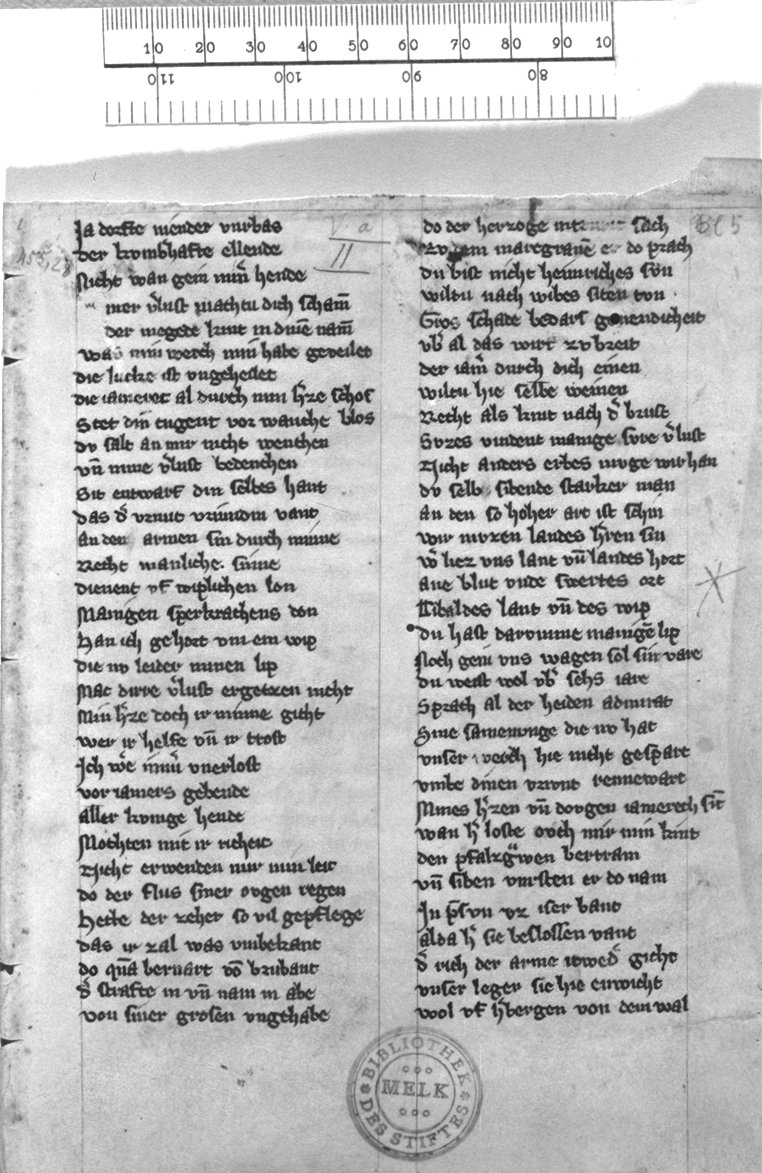 10 20 30 40 50 60 70 80 90 10
110 100 90 80
V a
II
Bl 5
453,28
Ja dorfte niender vurbas
Der krombhafte ellende
Nicht wan gein min̄ hende
mer v̓lust machtu dich scham̄
der megede kint in dinē nam̄
was min werch min habe geveilet
die lucke ist vngeheilet
die iameret al durch min h̓ze schos
Stet din tugent vor wanche blos
dv salt an mir nicht wenchen
vn̄ mine v̓lust bedenchen
Sit entwarf din selbes hant
das d̓ vrnnt vrundin vant
an den armen sin durch minne
Recht manliche sinne
dienent vf wiplichen lon
Manigen sperkrachens don
Han ich gehort vm ein wip
die nv leider minen lip
Mac dirre v̓lust ergetzen nicht
Min h̓ze doch ir minne gicht
wer ir helfe vn̄ ir trost
Ich w̓e imm̓ vnerlost
vor iamers gebende
aller kvnige hende
Mochten mit ir richeit
Nicht erwenden mir min leit
do der flus siner ovgen regen
Hette der zeher so vil gepflege
das ir zal was vmbekant
do qua̅ bernart vo̅ brubant
d̓ strafte in vn̄ nam in abe
von siner grosen vngehabe
do der herzoge sach
zv dem marcgravē er do prach
du bist nicht heimriches svn
wiltu nach wibes siten tvn
Gros schade bedarf gvnendicheit
vb̓ al das wirt zvbreit
der iam̓ durch dich einen
wiltu hie selbe weinen
Recht als kint nach d̓ brust
Svzes vindent manige svre v̓lust
Nicht anders erbes mvge wir han
dv selb sibende starker man
an den so hoher art ist schin
wir mvzen landes h̓ren sin
w̓ liez vns lant vn̄ landes hort
ane blut vnde swertes ort
Tibaldes lant vn̄ des wip
du hast darvmme manigē lip
Noch gein vns wagen sol sin vare
du weist wol vb̓ sehs iare
Sprach al der heiden admirat
Sine samenvnge die nv hat
vnser verch hie nicht gespart
vmbe dinen vrivnt rennewart
Mines h̓zen vn̄ dovgen iamerech sit̄
wan h̓ loste ovch mir min kint
den pfalzg̓wen bertram
vn̄ siben vursten er do nam
In p̓svn vz iser bant
alda h̓ sie beslossen vant
d̓ rich der arme itwed̓ gicht
vnser leger sie hie enwicht
wol vf h̓bergen von dem wal
BIBLIOTHEK
MELK
DES STIFTES